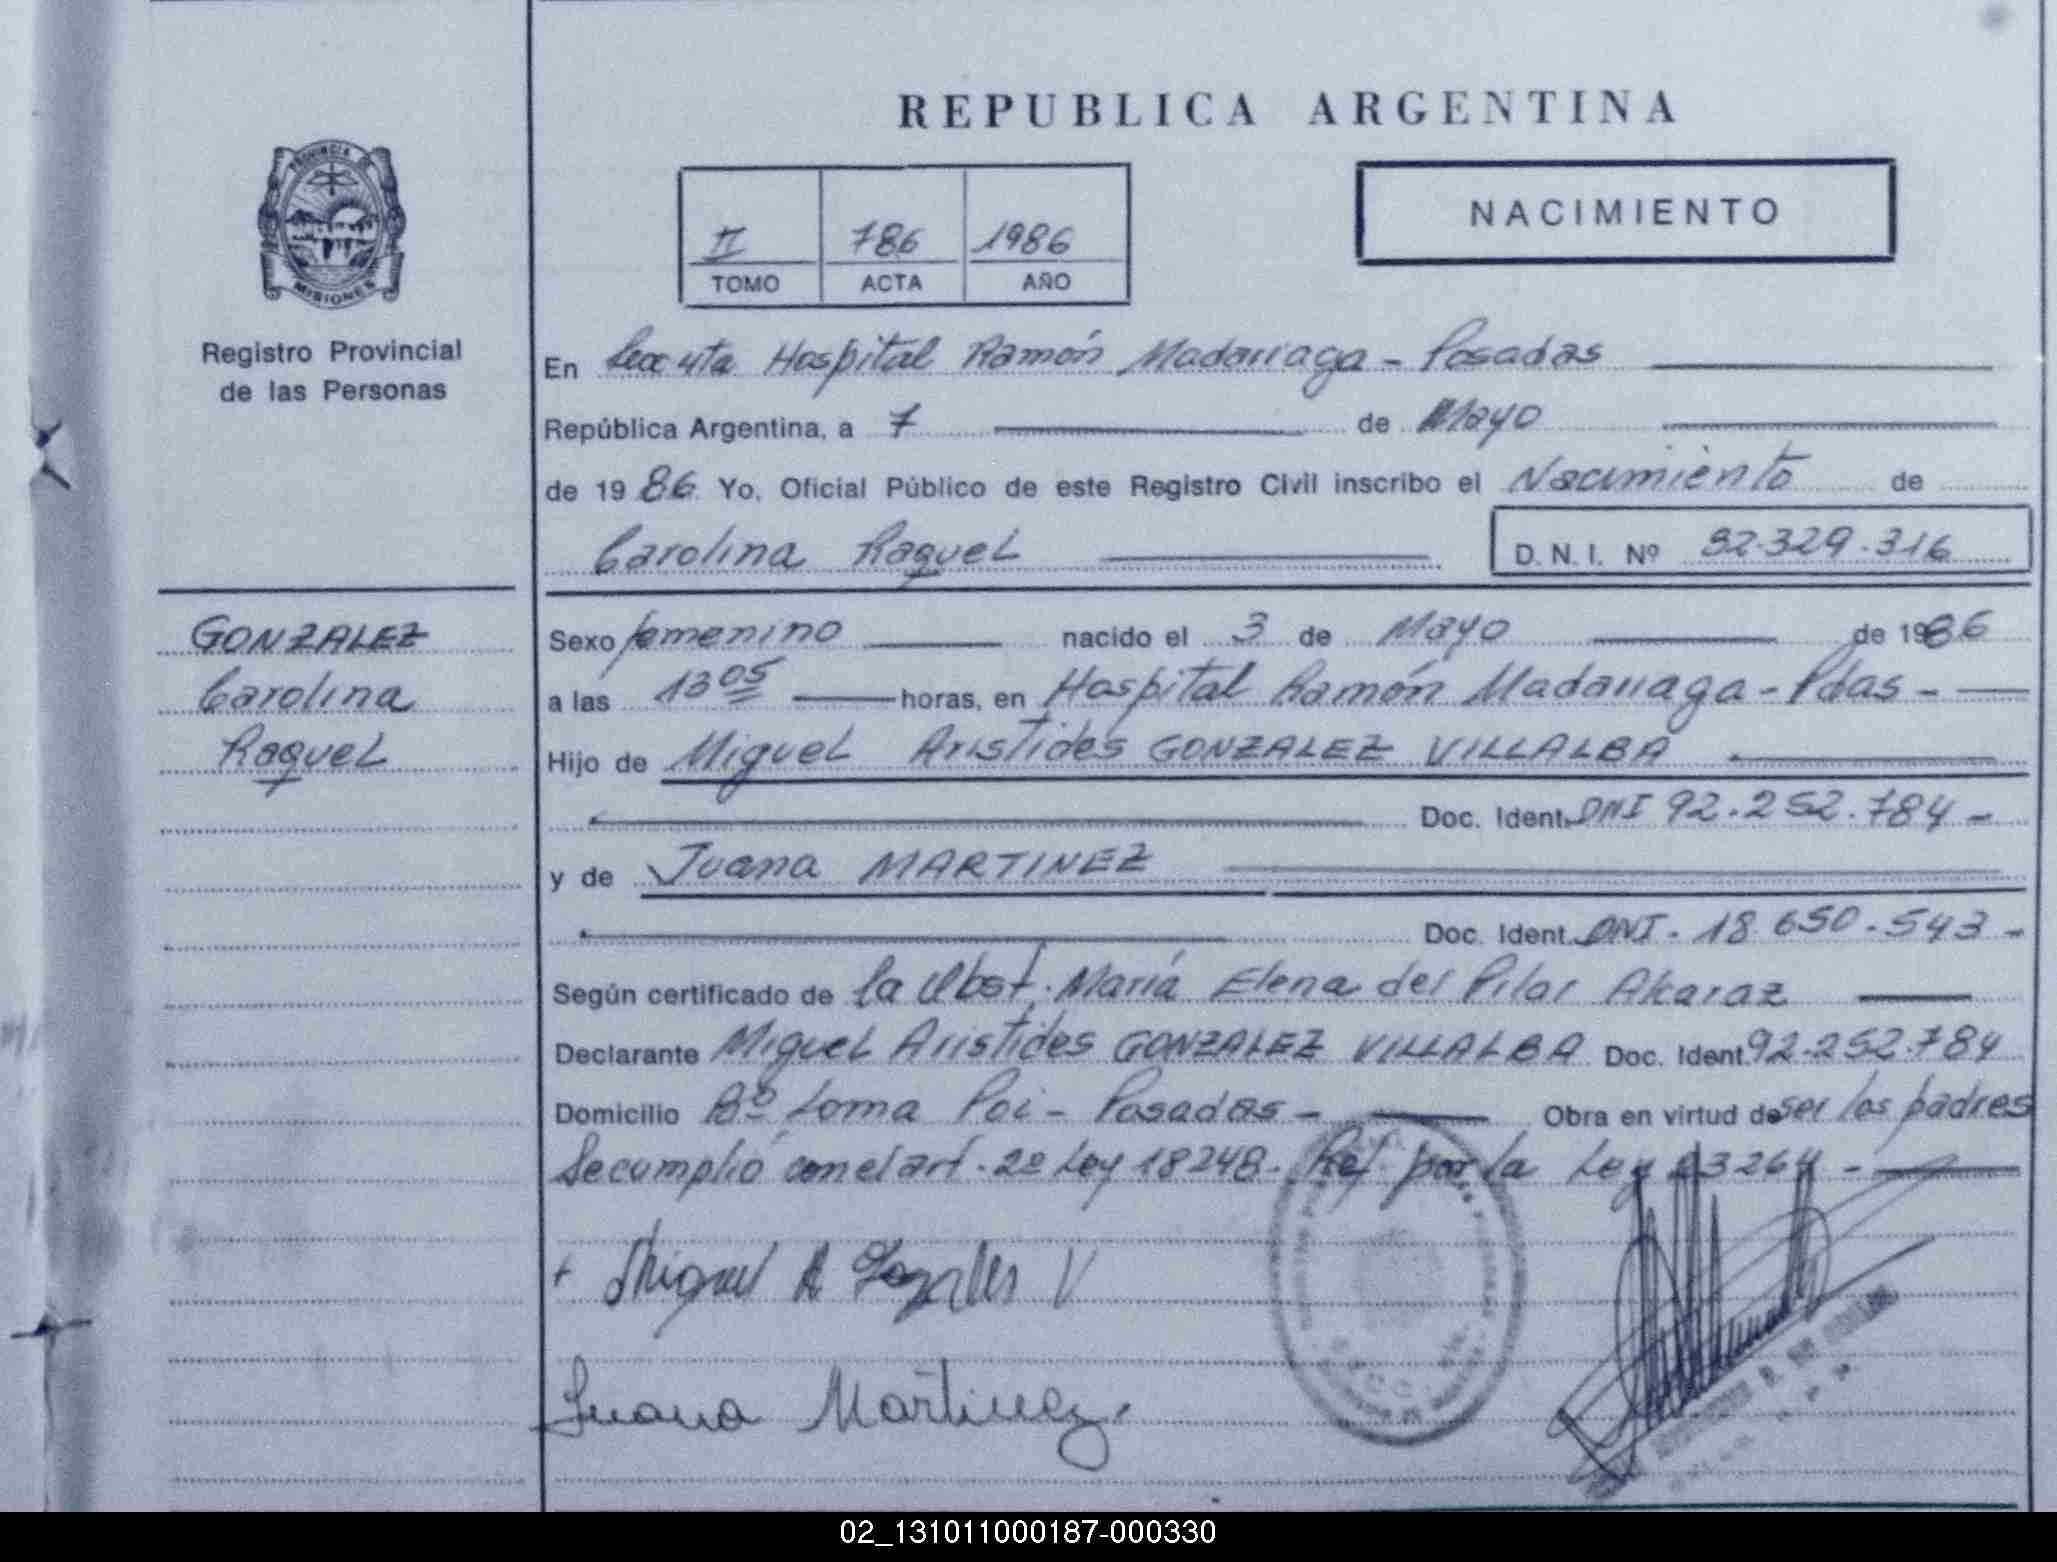 REPUBLICA ARGENTINA
PROVINCIA DE
MISIONES
Registro Provincial
de las Personas
II 786 1986
TOMO ACTA AÑO
NACIMIENTO
En Secc 4ta Hospital Ramón Madariaga - Posadas
República Argentina, a 7 de Mayo
de 1986 Yo, Oficial Público de este Registro Civil inscribo el Nacimiento de
Carolina Raquel D. N. I. Nº 32.329.316
GONZALEZ
Carolina
Raquel
Sexo femenino nacido el 3 de Mayo de 1986
a las 13 05 horas, en Hospital Ramón Madariaga - Pdas -
Hijo de Miguel Aristides GONZALEZ VILLALBA
Doc. Ident. DNI 92.252.784 -
y de Juana MARTINEZ
Doc. Ident. DNI - 18.650.543 -
Según certificado de la Obst. María Elena del Pilar Alcaraz
Declarante Miguel Aristides GONZALEZ VILLALBA Doc. Ident. 92.252.784
Domicilio Bº Loma Poi - Posadas - Obra en virtud de ser los padres
Se cumplió con el art. 2º Ley 18248 - Ref por la Ley 23264 -
+ Miguel A Gonzales V
Juana Martinez.
02_131011000187-000330